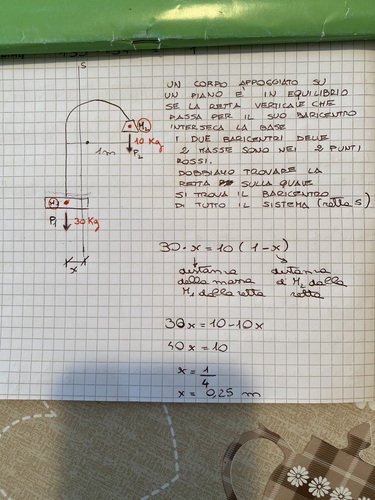 S
M₂
10 Kg
P₂
1m
M₁
P₁
30 Kg
x
UN CORPO APPOGGIATO SU
UN PIANO E' IN EQUILIBRIO
SE LA RETTA VERTICALE CHE
PASSA PER IL SUO BARICENTRO
INTERSECA LA BASE
I DUE BARICENTRI DELLE
2 MASSE SONO NEI 2 PUNTI
ROSSI.
DOBBIAMO TROVARE LA
RETTA SULLA QUALE
SI TROVA IL BARICENTRO
DI TUTTO IL SISTEMA (retta s)
30 · x = 10 (1 - x)
distanza della massa M₁ dalla retta
distanza di M₂ dalla retta
30x = 10 - 10x
40x = 10
x = 1/4
x = 0,25 m